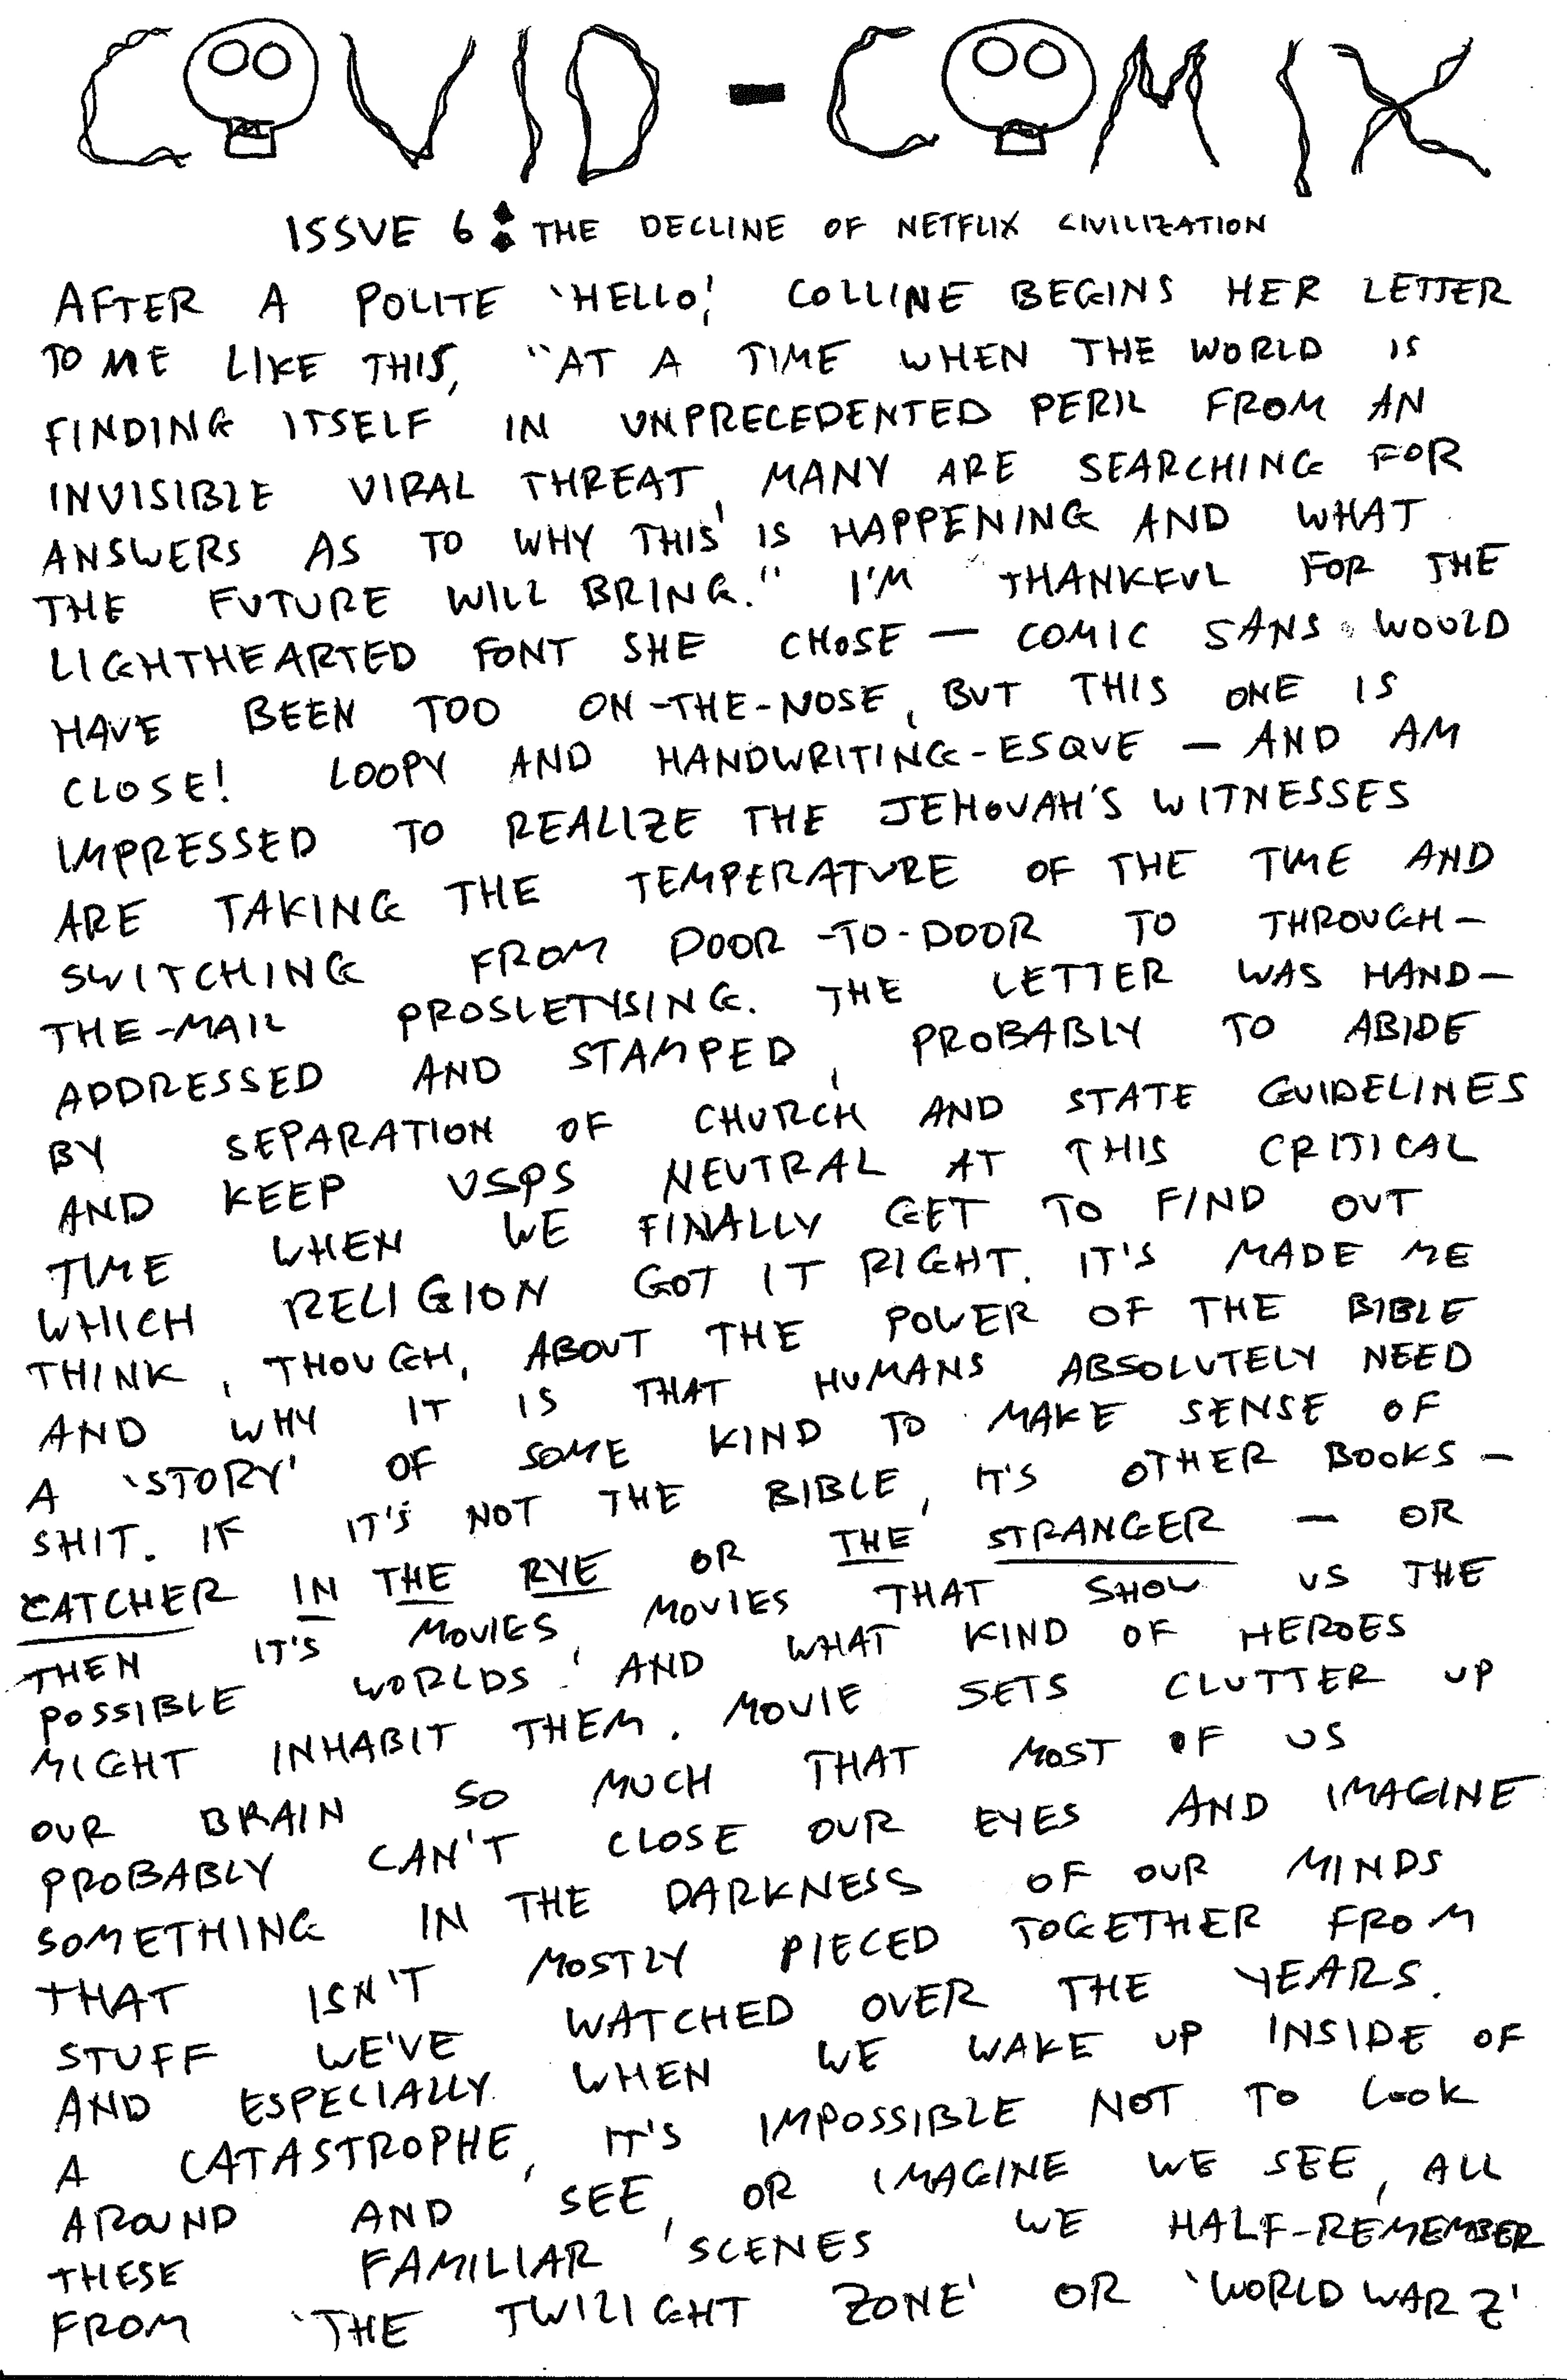 COVID-COMIX
ISSUE 6: THE DECLINE OF NETFLIX CIVILIZATION
AFTER A POLITE 'HELLO,' COLLINE BEGINS HER LETTER
TO ME LIKE THIS, "AT A TIME WHEN THE WORLD IS
FINDING ITSELF IN UNPRECEDENTED PERIL FROM AN
INVISIBLE VIRAL THREAT, MANY ARE SEARCHING FOR
ANSWERS AS TO WHY THIS IS HAPPENING AND WHAT
THE FUTURE WILL BRING." I'M THANKFUL FOR THE
LIGHTHEARTED FONT SHE CHOSE — COMIC SANS WOULD
HAVE BEEN TOO ON-THE-NOSE, BUT THIS ONE IS
CLOSE! LOOPY AND HANDWRITING-ESQUE — AND AM
IMPRESSED TO REALIZE THE JEHOVAH'S WITNESSES
ARE TAKING THE TEMPERATURE OF THE TIME AND
SWITCHING FROM DOOR-TO-DOOR TO THROUGH-
THE-MAIL PROSLETYSING. THE LETTER WAS HAND-
ADDRESSED AND STAMPED, PROBABLY TO ABIDE
BY SEPARATION OF CHURCH AND STATE GUIDELINES
AND KEEP USPS NEUTRAL AT THIS CRITICAL
TIME WHEN WE FINALLY GET TO FIND OUT
WHICH RELIGION GOT IT RIGHT. IT'S MADE ME
THINK, THOUGH, ABOUT THE POWER OF THE BIBLE
AND WHY IT IS THAT HUMANS ABSOLUTELY NEED
A 'STORY' OF SOME KIND TO MAKE SENSE OF
SHIT. IF IT'S NOT THE BIBLE, IT'S OTHER BOOKS —
CATCHER IN THE RYE OR THE STRANGER — OR
THEN IT'S MOVIES, MOVIES THAT SHOW US THE
POSSIBLE WORLDS, AND WHAT KIND OF HEROES
MIGHT INHABIT THEM. MOVIE SETS CLUTTER UP
OUR BRAIN SO MUCH THAT MOST OF US
PROBABLY CAN'T CLOSE OUR EYES AND IMAGINE
SOMETHING IN THE DARKNESS OF OUR MINDS
THAT ISN'T MOSTLY PIECED TOGETHER FROM
STUFF WE'VE WATCHED OVER THE YEARS.
AND ESPECIALLY WHEN WE WAKE UP INSIDE OF
A CATASTROPHE, IT'S IMPOSSIBLE NOT TO LOOK
AROUND AND SEE, OR IMAGINE WE SEE, ALL
THESE FAMILIAR SCENES WE HALF-REMEMBER
FROM 'THE TWILIGHT ZONE' OR 'WORLD WAR Z'